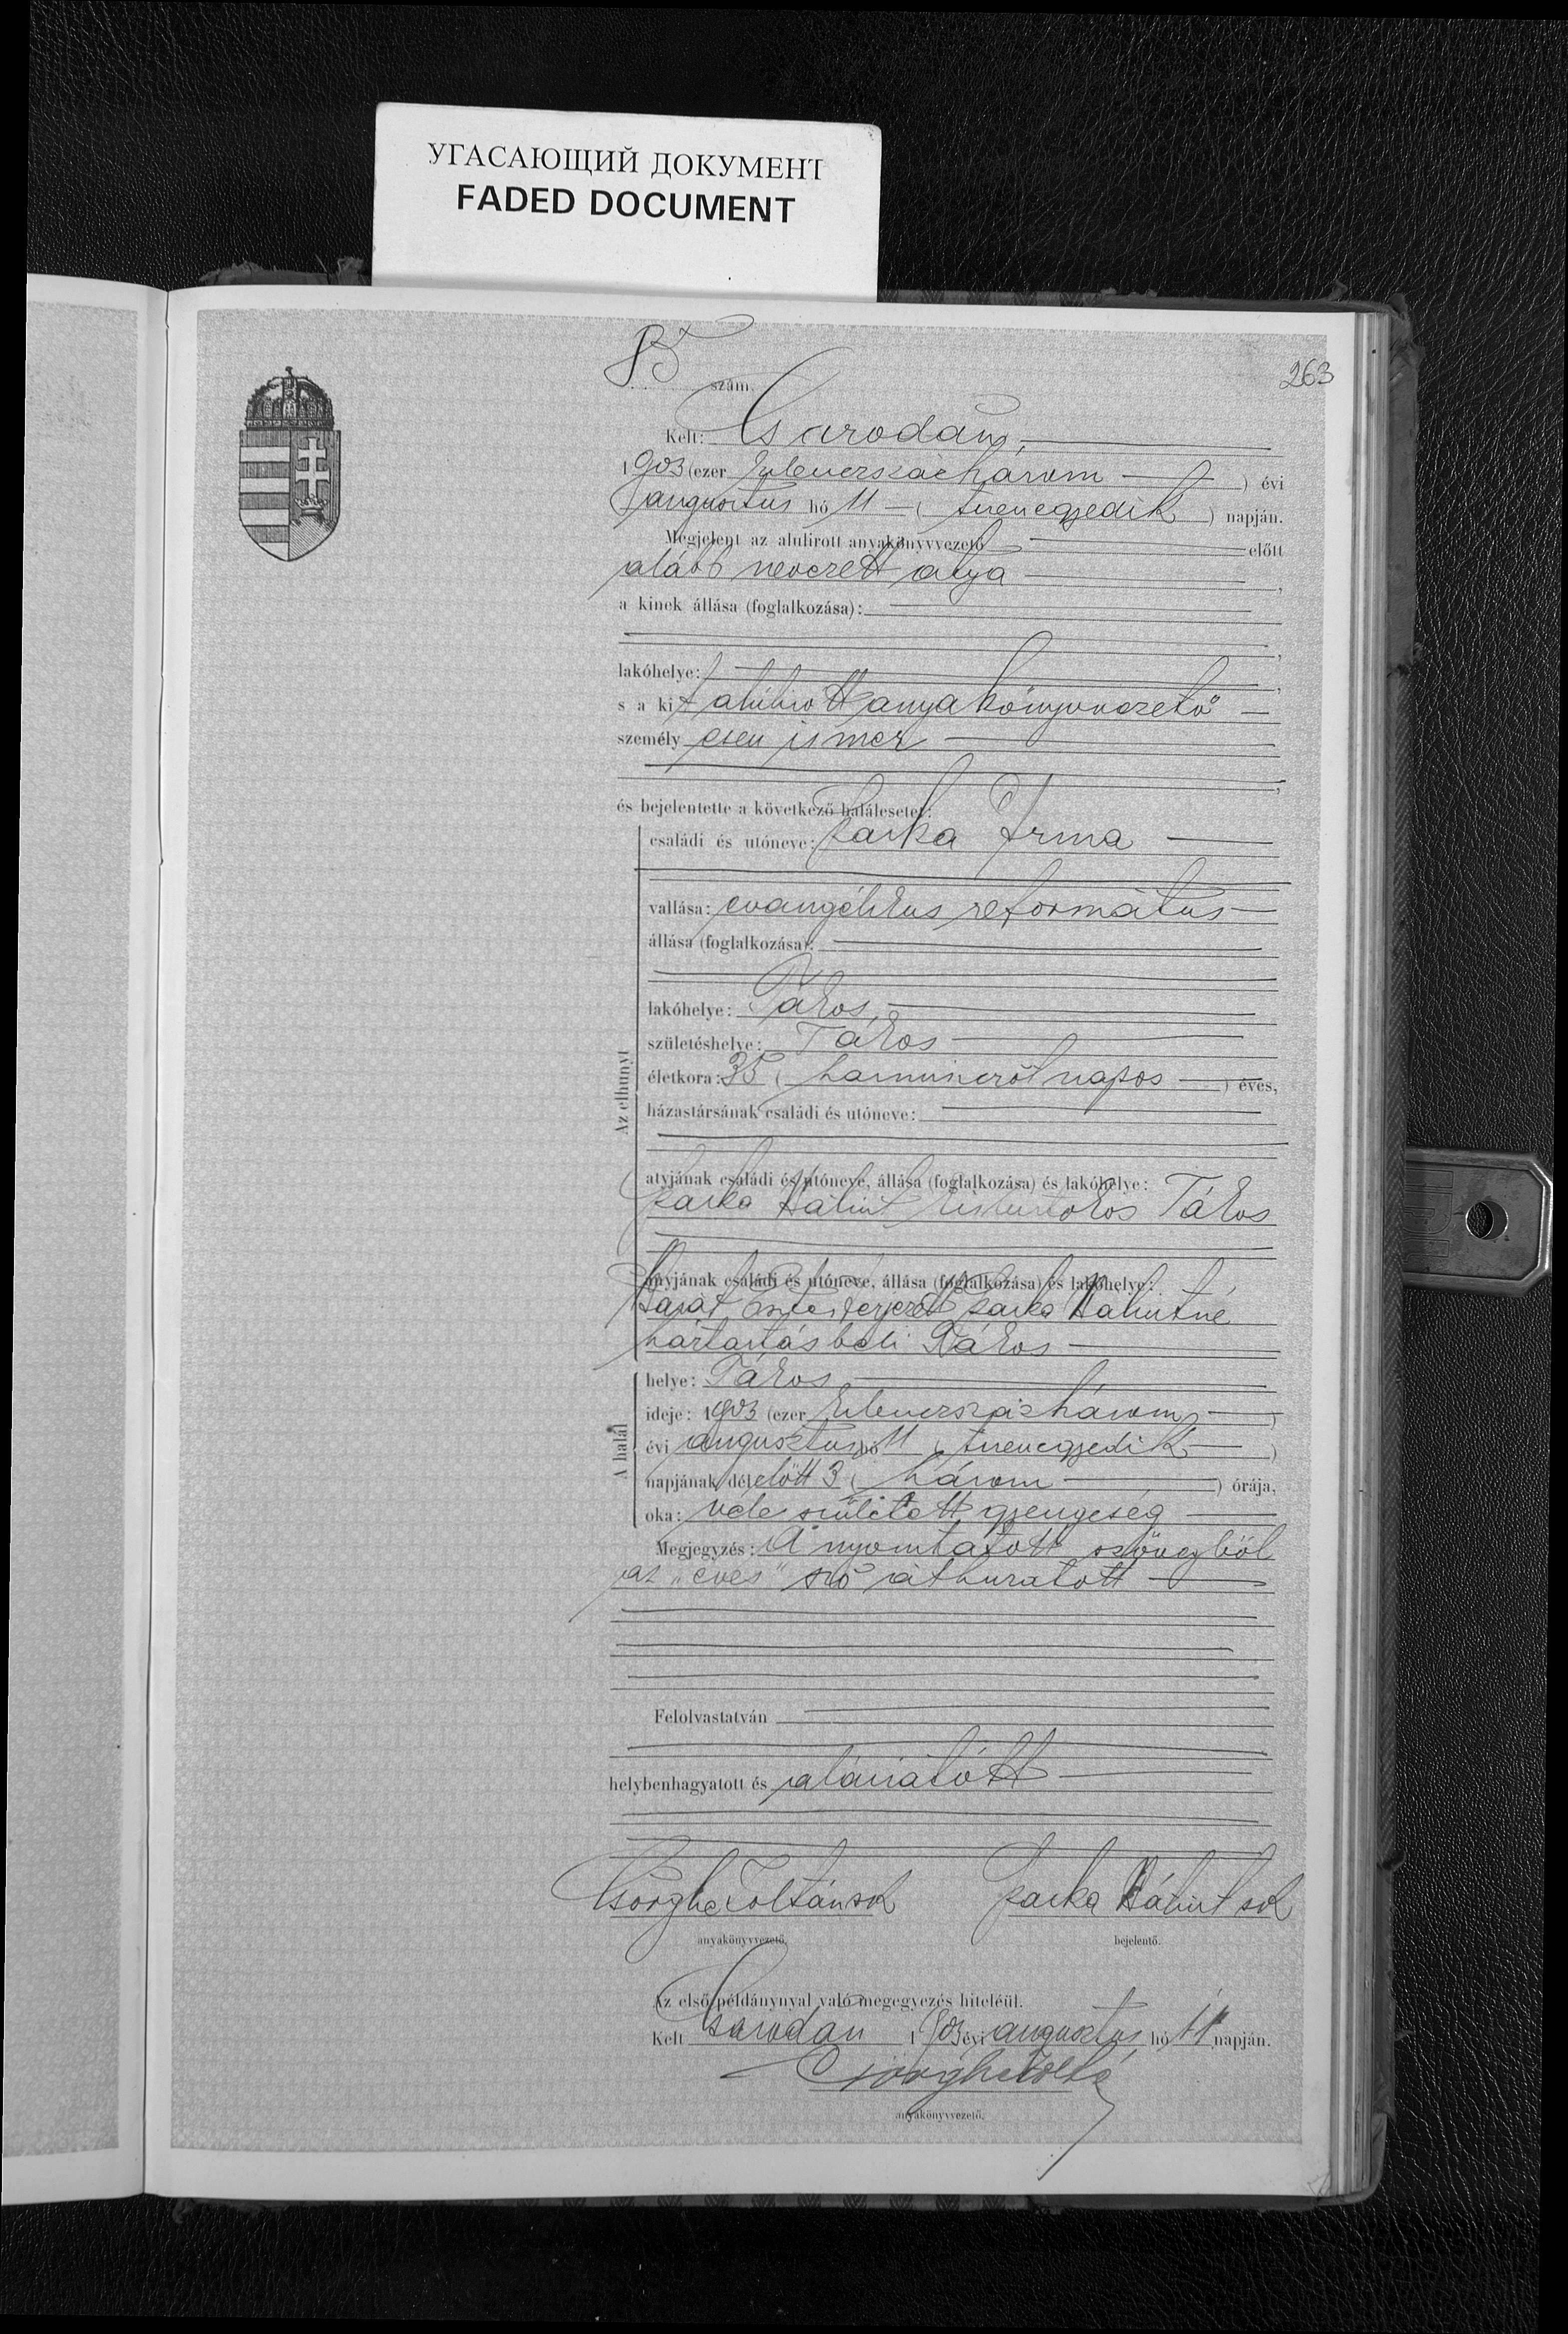 УГАСАЮЩИЙ ДОКУМЕНТ
FADED DOCUMENT
263
85 szám.
Kelt: Csarodán,
1903 (ezer kilencszázhárom) évi
augusztus hó 11 (tizenegyedik) napján.
Megjelent az alulirott anyakönyvvezető előtt
alább nevezett atya,
a kinek állása (foglalkozása):
lakóhelye:
s a kit alúlirott anyakönyvvezető
személyesen ismer
és bejelentette a következő halálesetet:
Az elhunyt
családi és utóneve: Zarka Irma
vallása: evangélikus református
állása (foglalkozása):
lakóhelye: Tákos,
születéshelye: Tákos
életkora: 35 (harmincöt napos) éves,
házastársának családi és utóneve:
atyjának családi és utóneve, állása (foglalkozása) és lakóhelye:
Zarka Bálint kisbirtokos Tákos
anyjának családi és utóneve, állása (foglalkozása) és lakóhelye:
Eszter Zarka Bálintné
háztartásbeli Tákos
A halál
helye: Tákos
ideje: 1903 (ezer kilencszázhárom)
évi augusztus hó 11 (tizenegyedik)
napjának délelőtt 3 (három) órája,
oka: vele született gyengeség
Megjegyzés: A nyomtatott szövegből
az „éves" szó áthuzatott
Felolvastatván
helybenhagyatott és aláiratott
Csörghe Zoltán sk Zarka Bálint sk
anyakönyvvezető. bejelentő.
Az első példánynyal való megegyezés hiteléül.
Kelt Csarodán 1903 évi augusztus hó 11 napján.
Csörghe Zoltá
anyakönyvvezető.